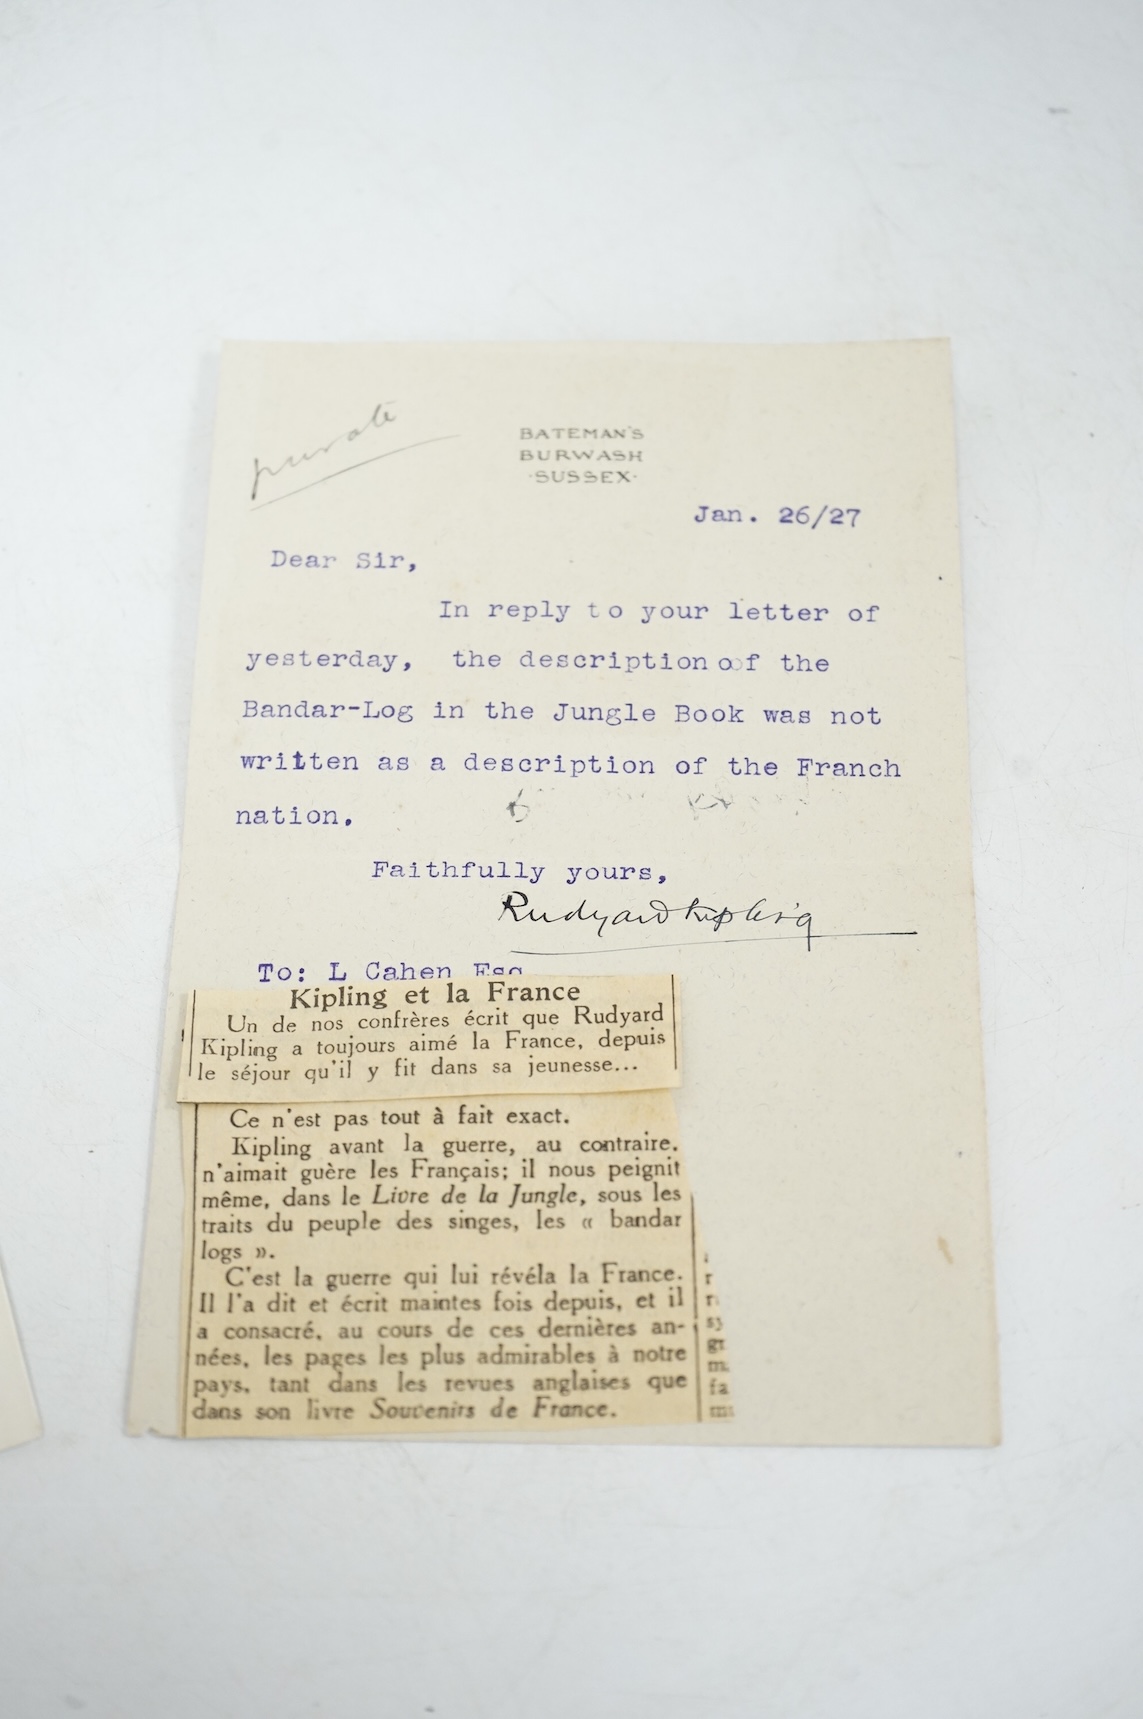 private
BATEMAN'S
BURWASH
·SUSSEX·
Jan. 26/27
Dear Sir,
In reply to your letter of
yesterday, the description oof the
Bandar-Log in the Jungle Book was not
written as a description of the Franch
nation.
Faithfully yours,
Rudyard Kipling
To: L Cahen Esq
Kipling et la France
Un de nos confrères écrit que Rudyard
Kipling a toujours aimé la France, depuis
le séjour qu'il y fit dans sa jeunesse...
Ce n'est pas tout à fait exact.
Kipling avant la guerre, au contraire,
n'aimait guère les Français; il nous peignit
même, dans le Livre de la Jungle, sous les
traits du peuple des singes, les « bandar
logs ».
C'est la guerre qui lui révéla la France.
Il l'a dit et écrit maintes fois depuis, et il
a consacré, au cours de ces dernières an-
nées, les pages les plus admirables à notre
pays, tant dans les revues anglaises que
dans son livre Souvenirs de France.